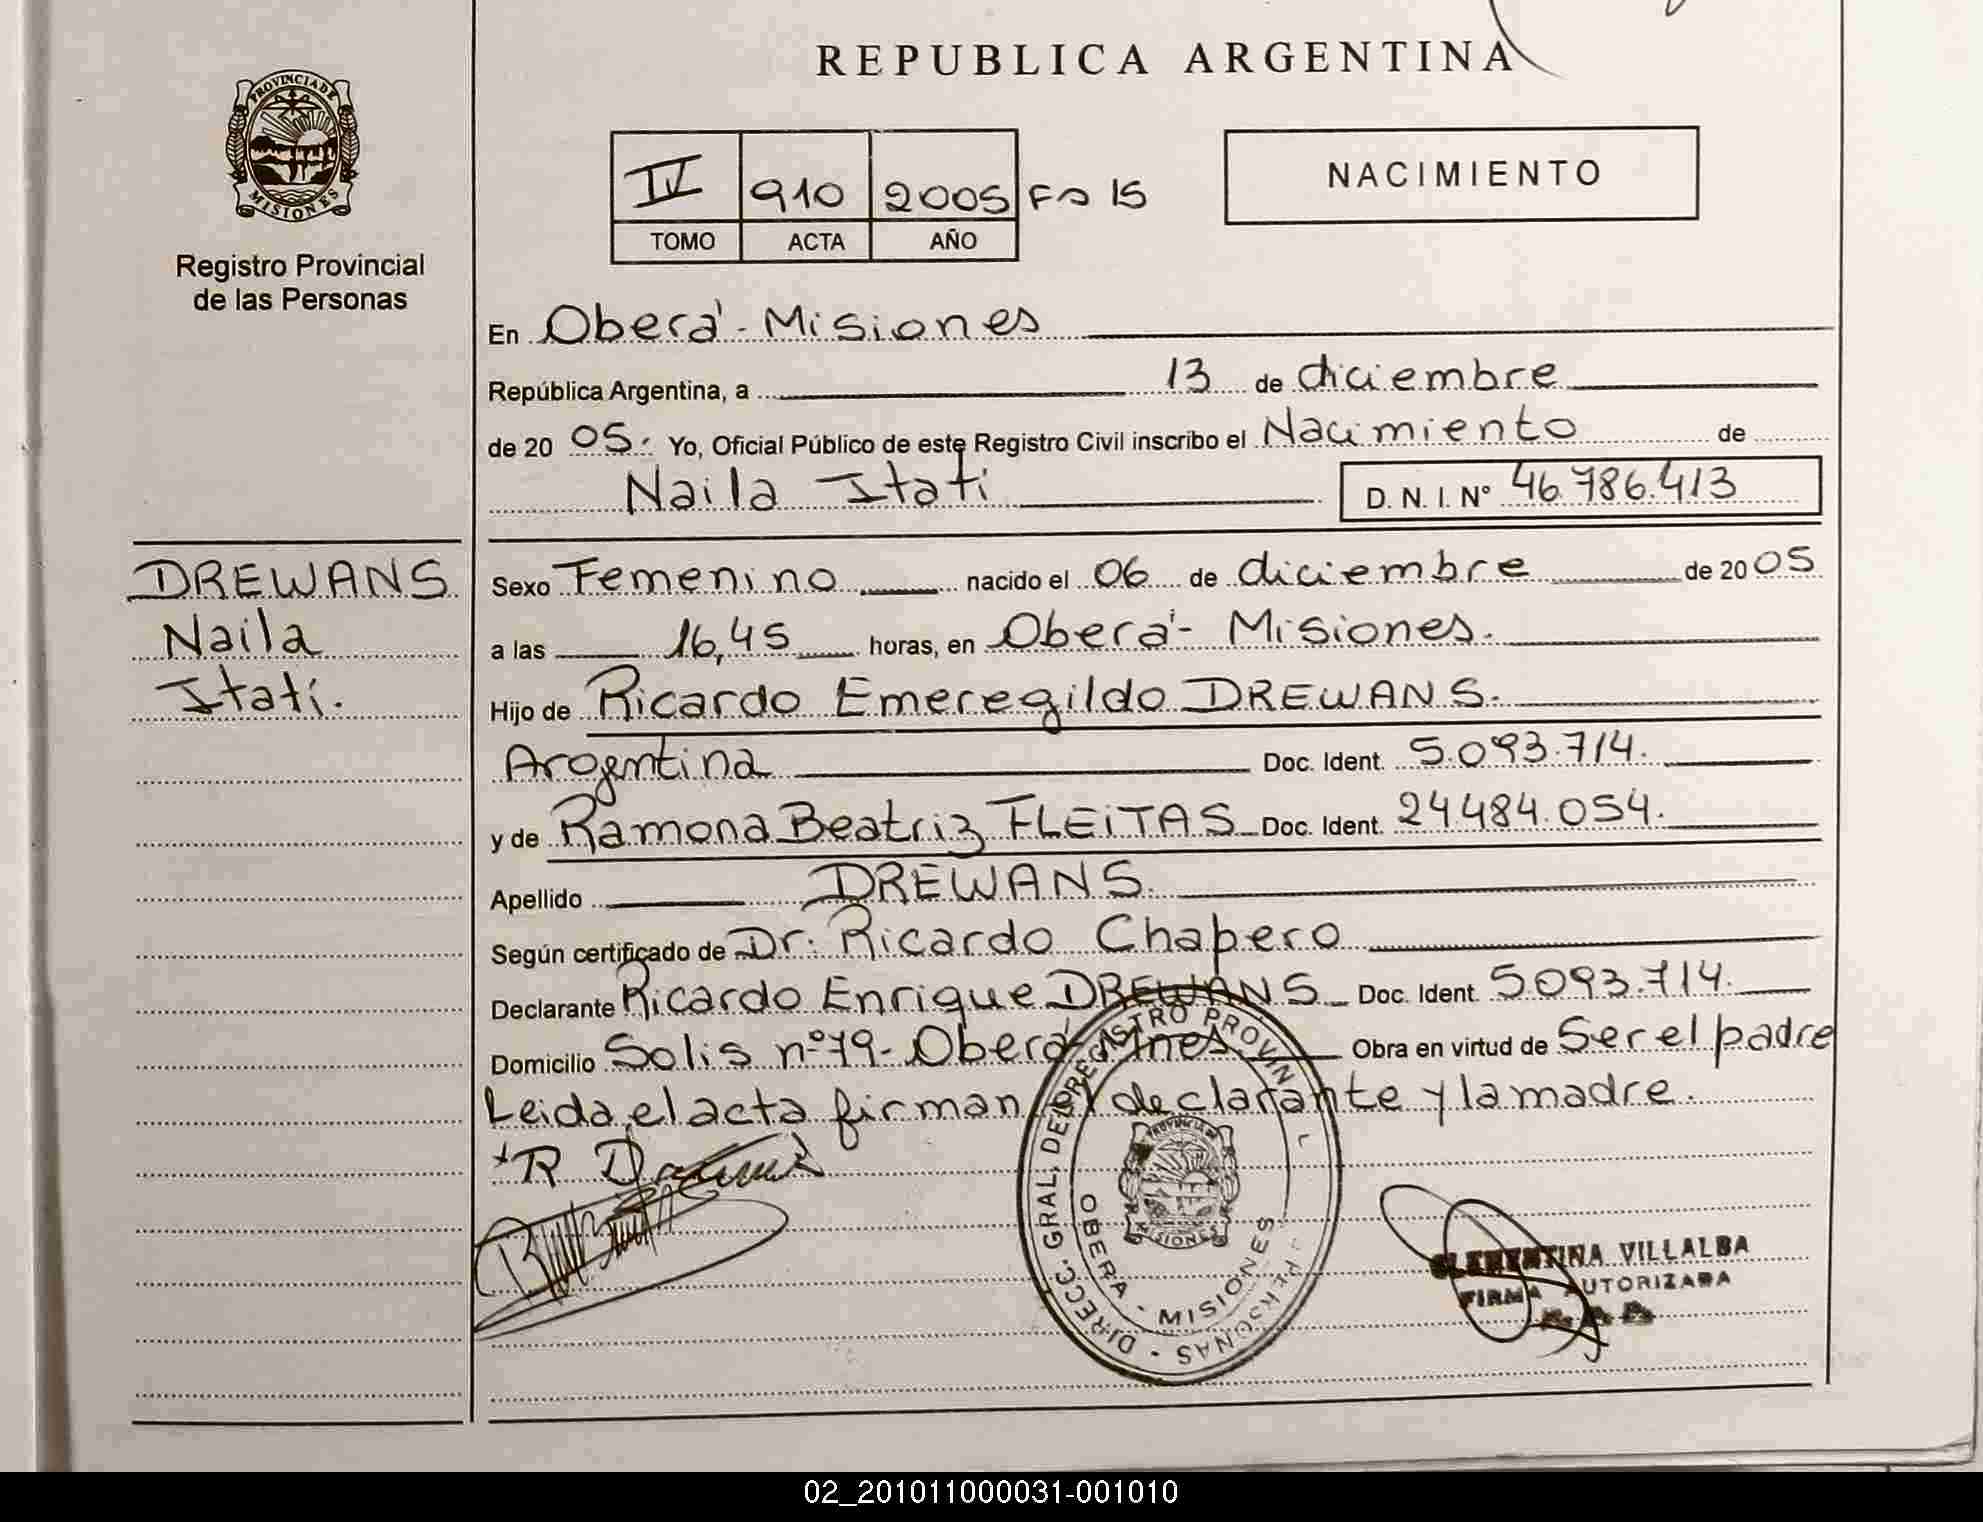 REPUBLICA ARGENTINA
PROVINCIA DE
MISIONES
Registro Provincial
de las Personas
IV 910 2005 Fo 15
TOMO ACTA AÑO
NACIMIENTO
En Oberá - Misiones
República Argentina, a 13 de diciembre
de 20 05. Yo, Oficial Público de este Registro Civil inscribo el Nacimiento de
Naila Itatí D. N. I. N° 46.786.413
DREWANS
Naila
Itatí.
Sexo Femenino nacido el 06 de diciembre de 20 05
a las 16,45 horas, en Oberá - Misiones.
Hijo de Ricardo Emeregildo DREWANS.
Argentina Doc. Ident. 5.093.714.
y de Ramona Beatriz FLEITAS Doc. Ident. 24484.054.
Apellido DREWANS.
Según certificado de Dr. Ricardo Chapero
Declarante Ricardo Enrique DREWANS Doc. Ident. 5093.714.
Domicilio Solis nº 79 - Oberá - Mnes. Obra en virtud de Ser el padre
Leida el acta firman el declarante y la madre.
DIRECC. GRAL. DEL REGISTRO PROVINCIAL PERSONAS
PROVINCIA DE
MISIONES
OBERA - MISIONES
CLEMENTINA VILLALBA
FIRMA AUTORIZADA
02_201011000031-001010